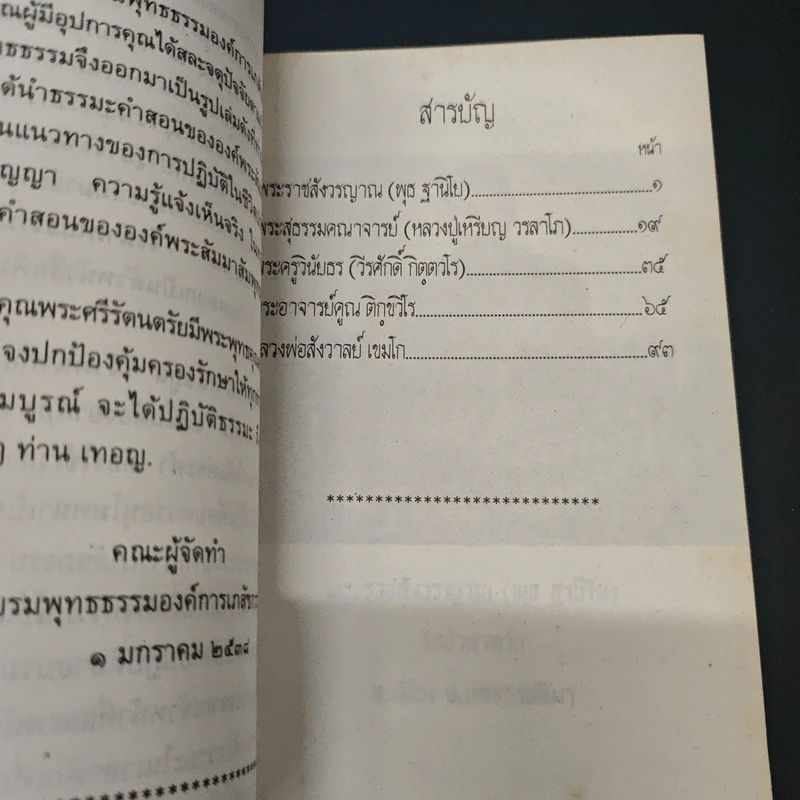 พุทธธรรมองค์การ
ผู้มีอุปการคุณได้สละจตุปัจจัย
ธรรมจึงออกมาเป็นรูปเล่ม
นำธรรมะคำสอนขององค์พระ
แนวทางของการปฏิบัติในชีวิต
ความรู้แจ้งเห็นจริง
คำสอนขององค์พระสัมมาสัมพุทธ
คุณพระศรีรัตนตรัยมีพระพุทธคุณ
จงปกป้องคุ้มครองรักษาให้ทุก
จะได้ปฏิบัติธรรมะ
ท่าน เทอญ.
คณะผู้จัดทำ
พุทธธรรมองค์การเภสัช
๑ มกราคม ๒๕๓๘
********************
สารบัญ
หน้า
พระราชสังวรญาณ (พุธ ฐานิโย)..........๑
พระสุธรรมคณาจารย์ (หลวงปู่เหรียญ วรลาโภ)..........๑๙
พระครูวินัยธร (วีรศักดิ์ กิตฺตวโร)..........๓๕
พระอาจารย์คูณ ติกฺขวีโร..........๖๕
ลวงพ่อสังวาลย์ เขมโก..........๙๓
****************************